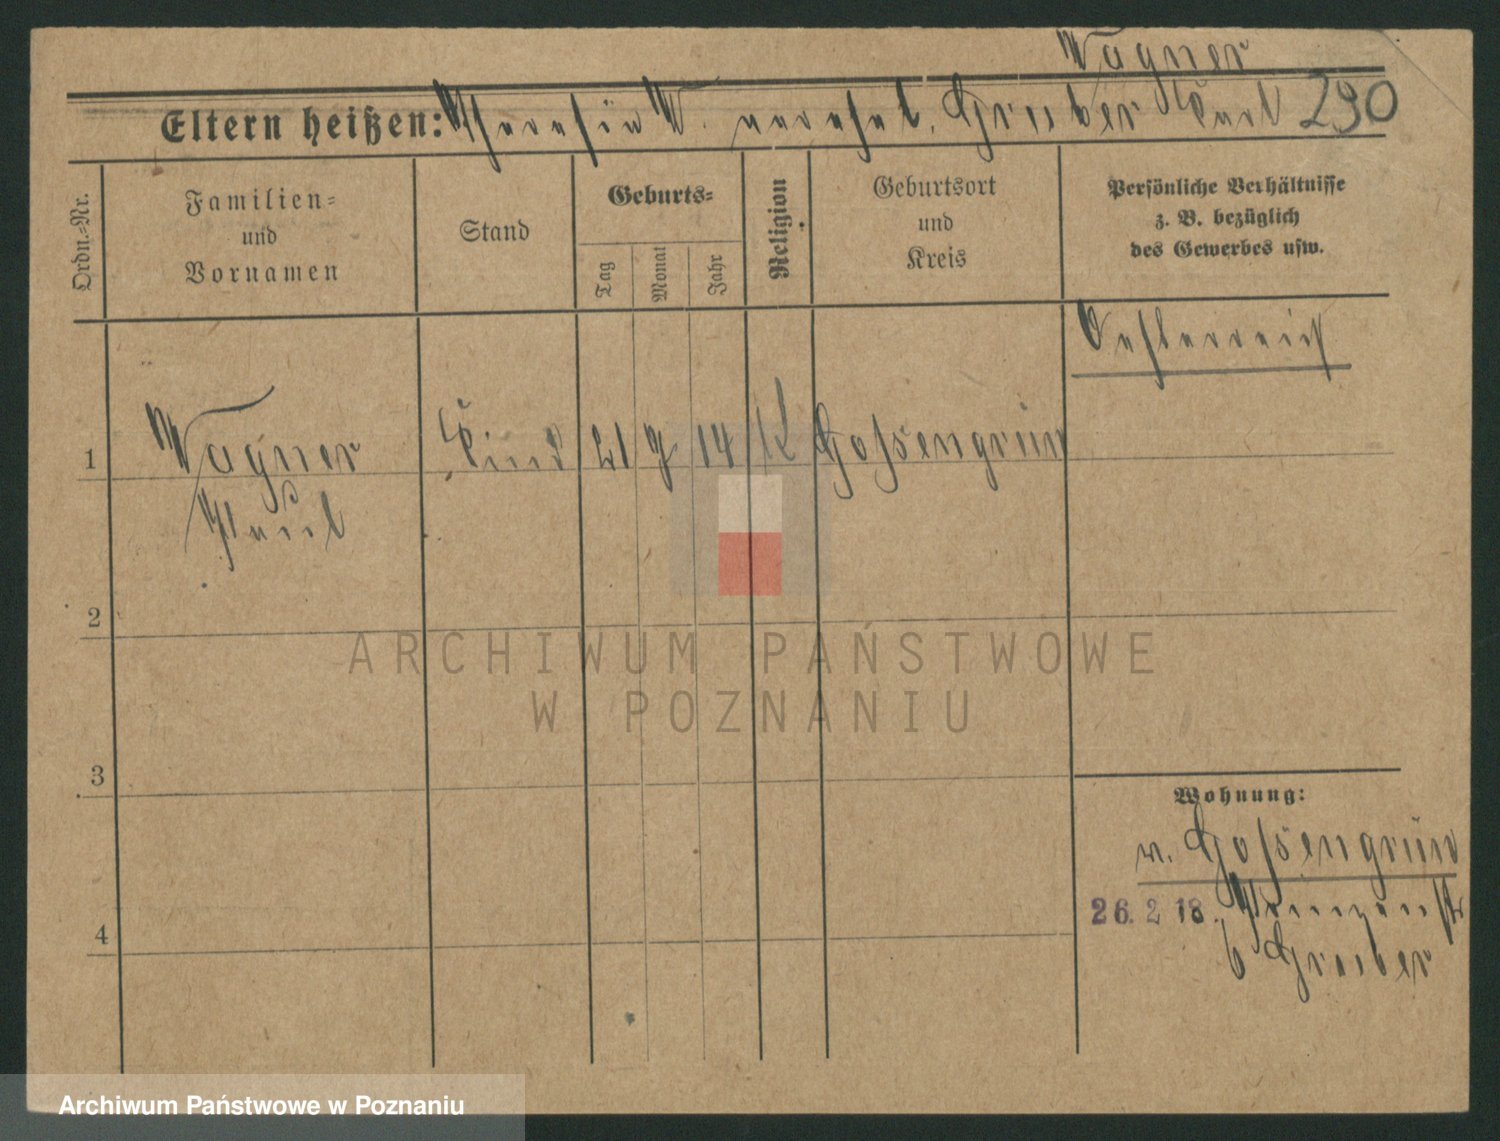 Wagner
Eltern heißen: Theresia W. verehel. Gruber Karl 290
Ordn.-Nr.
Familien=
und
Vornamen
Stand
Geburts=
Tag
Monat
Jahr
Religion
Geburtsort
und
Kreis
Persönliche Verhältnisse
z. B. bezüglich
des Gewerbes usw.
Oesterreich
1 Wagner Kind 21 9 14 K Gossengrün
Paul
2
3
4
Wohnung:
v. Gossengrün
26. 2 18.
b Gruber
ARCHIWUM PAŃSTWOWE
W POZNANIU
Archiwum Państwowe w Poznaniu